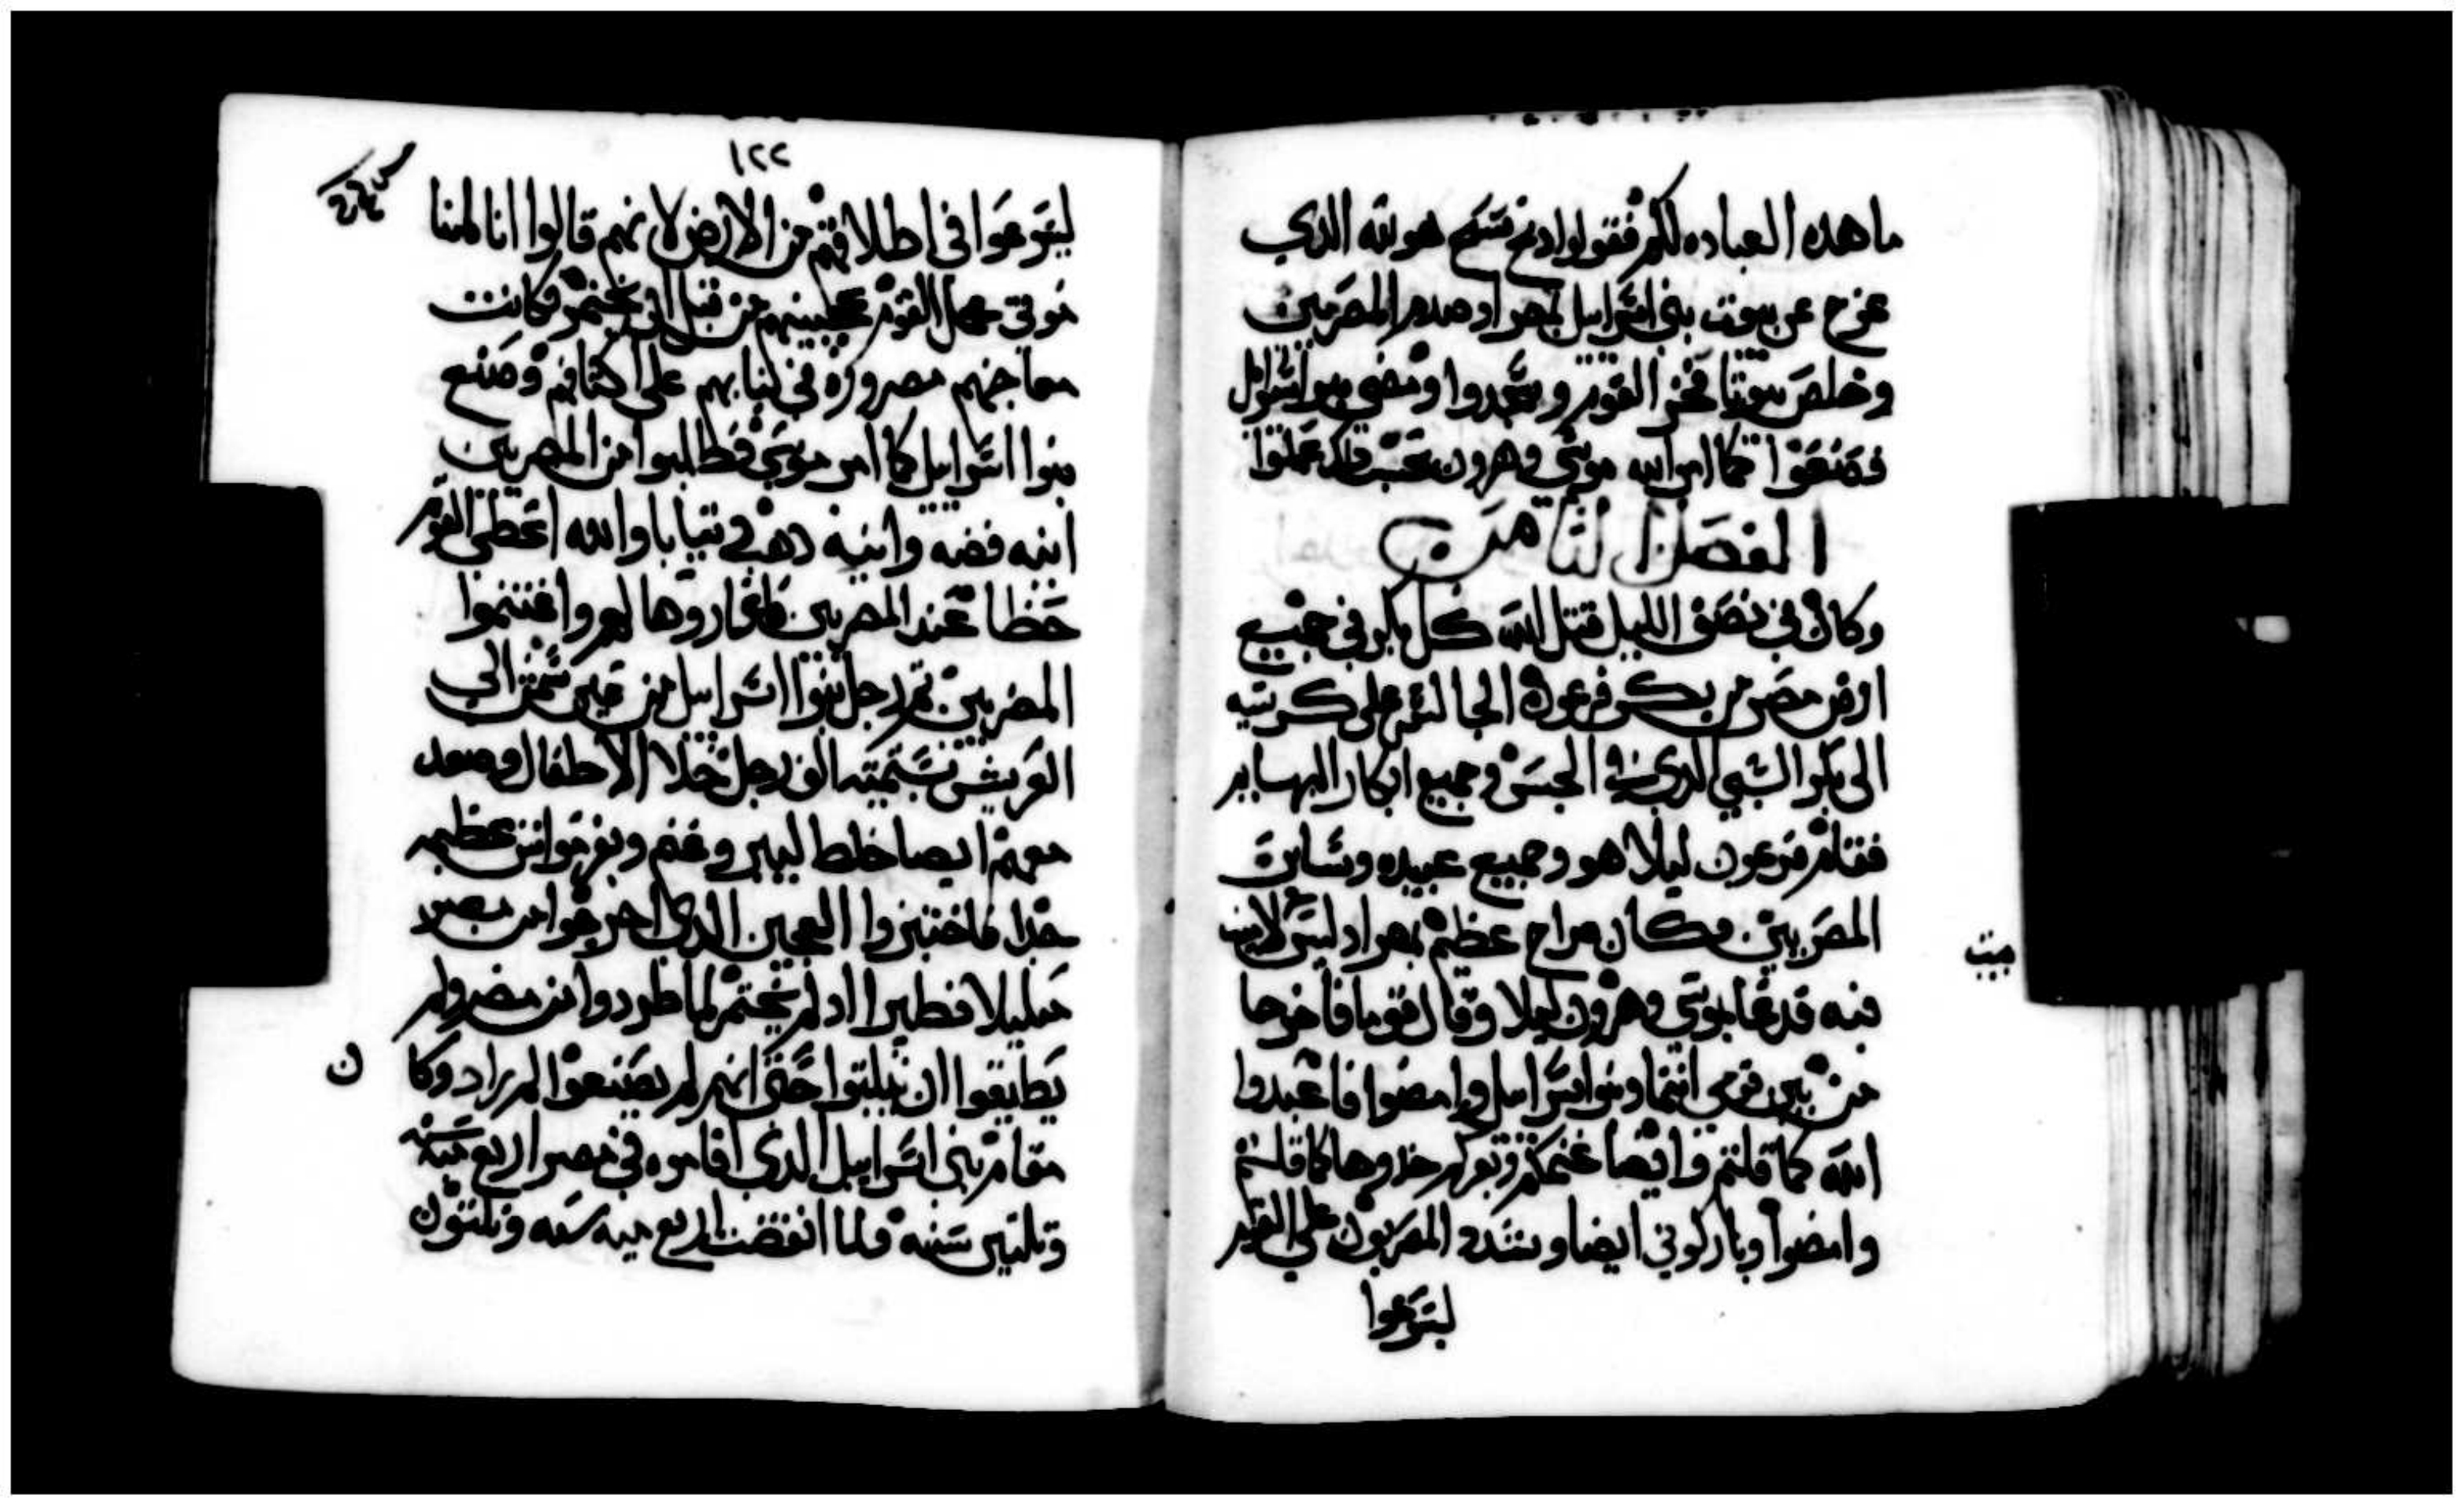 ما هده العباده لكم فقولوا دبح فسح هو لله الدي
عرج عن بيوت بني اسراييل بمصر اد صدم المصريين
وخلص بيوتنا فخر القوم وسجدوا ومضي بنو اسرايل
فصنعوا كما امر الله موسي وهرون حسب دلك عملوا
الفصل الثامن
وكان في نصف الليل قتل الله كل بكر في جميع
ارض مصر من بكر فرعون الجالس علي كرسيه
الى بكر السبي الدي في الحبس وجميع ابكار البهايم
فقام فرعون ليلا هو وجميع عبيده وساير
المصريين وكان صراخ عظيم بمصر اد ليس لا بيت
ميت
فيه فدعا بموسي وهرون ليلا وقال قوما فاخرجا
من بين قومي انتما وبنوا اسراييل وامضوا فاعبدوا
الله كما قلتم وايضا غنمكم وبقركم خدوها كما قلتم
وامضوا وباركوني ايضا وشدد المصريون علي القوم
ليسرعوا
١٢٢
ليسرعوا في اطلاقهم من الارض لانهم قالوا انا كلنا
موتي حمل القوم عجينهم من قبل ان يختمر وكانت
معاجنهم مصروره في ثيابهم على اكتافهم وصنع
بنوا اسراييل كما امر موسي فطلبوا من المصريين
انيه فضه وانيه دهب وثيابا والله اعطي القوم
حظا عند المصريين فاعاروها لهم واغتنموا
المصريين ثم رحل بنوا اسراييل من عين شمس الي
العريش ستميه الف رجل خلا الاطفال وصعد
معهم ايضا خلط كبير وغنم وبقر مواشي عظيمه
جدا فاختبزوا العجين الدي اخرجوا من مصر
مليلا فطيرا اد لم يختمر لما طردوا من مصر ولم
يطيقوا ان يلبثوا حتي انهم لم يصنعوا لهم زاد وكا
ن
مقام بني اسراييل الدي اقاموه في مصر اربع ميه سنه
وثلثين سنه ولما انقضت اربع ميه سنه وثلثون